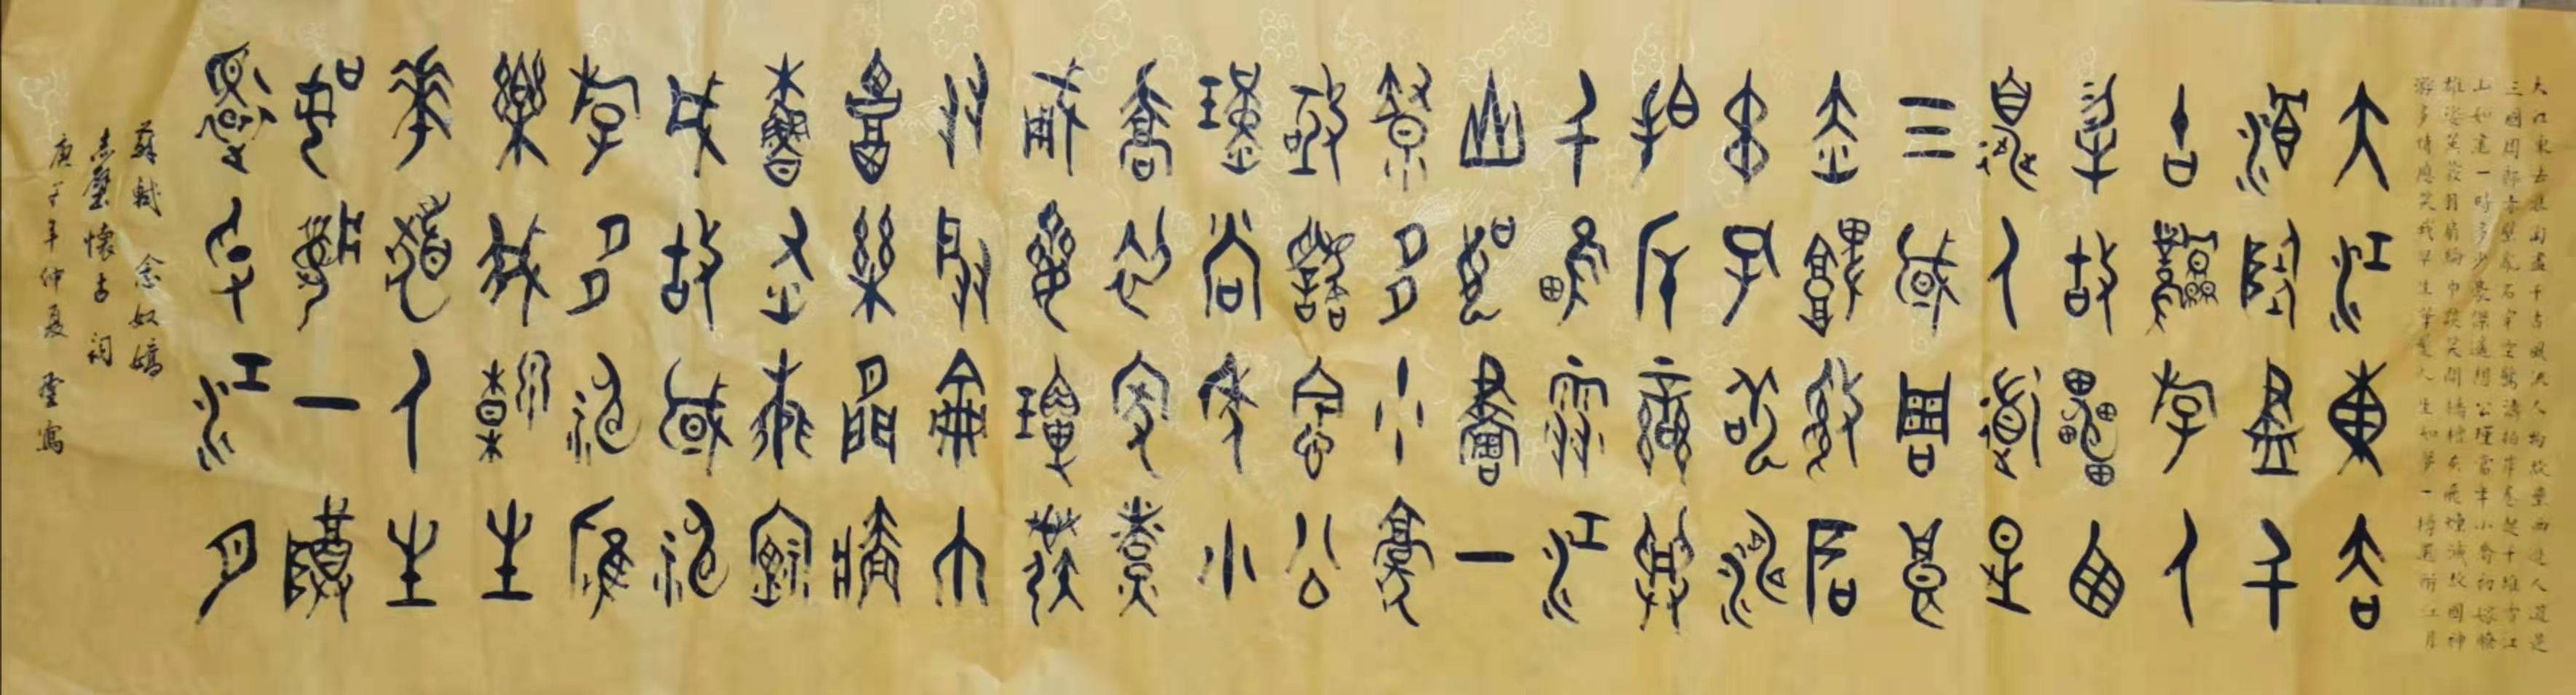 大江東去浪淘盡千古風流人物故壘西邊人道是
三國周郎赤壁亂石穿空驚濤拍岸卷起千堆雪江
山如畫一時多少豪傑遙想公瑾當年小喬初嫁瞭
雄姿英發羽扇綸巾談笑間檣櫓灰飛煙滅故國神
游多情應笑我早生華髮人生如夢一樽還酹江月
大江東去
浪淘盡千
古風流人
物故壘西
邊人道是
三國周郎
赤壁亂石
穿空驚濤
拍岸卷起
千堆雪江
山如畫一
時多少豪
傑遙想公
瑾當年小
喬初嫁瞭
雄姿英發
羽扇綸巾
談笑間檣
櫓灰飛煙
滅故國神
游多情應
笑我早生
華髮人生
如夢一樽
還酹江月
蘇軾 念奴嬌
赤壁懷古詞
庚子年仲夏 寫